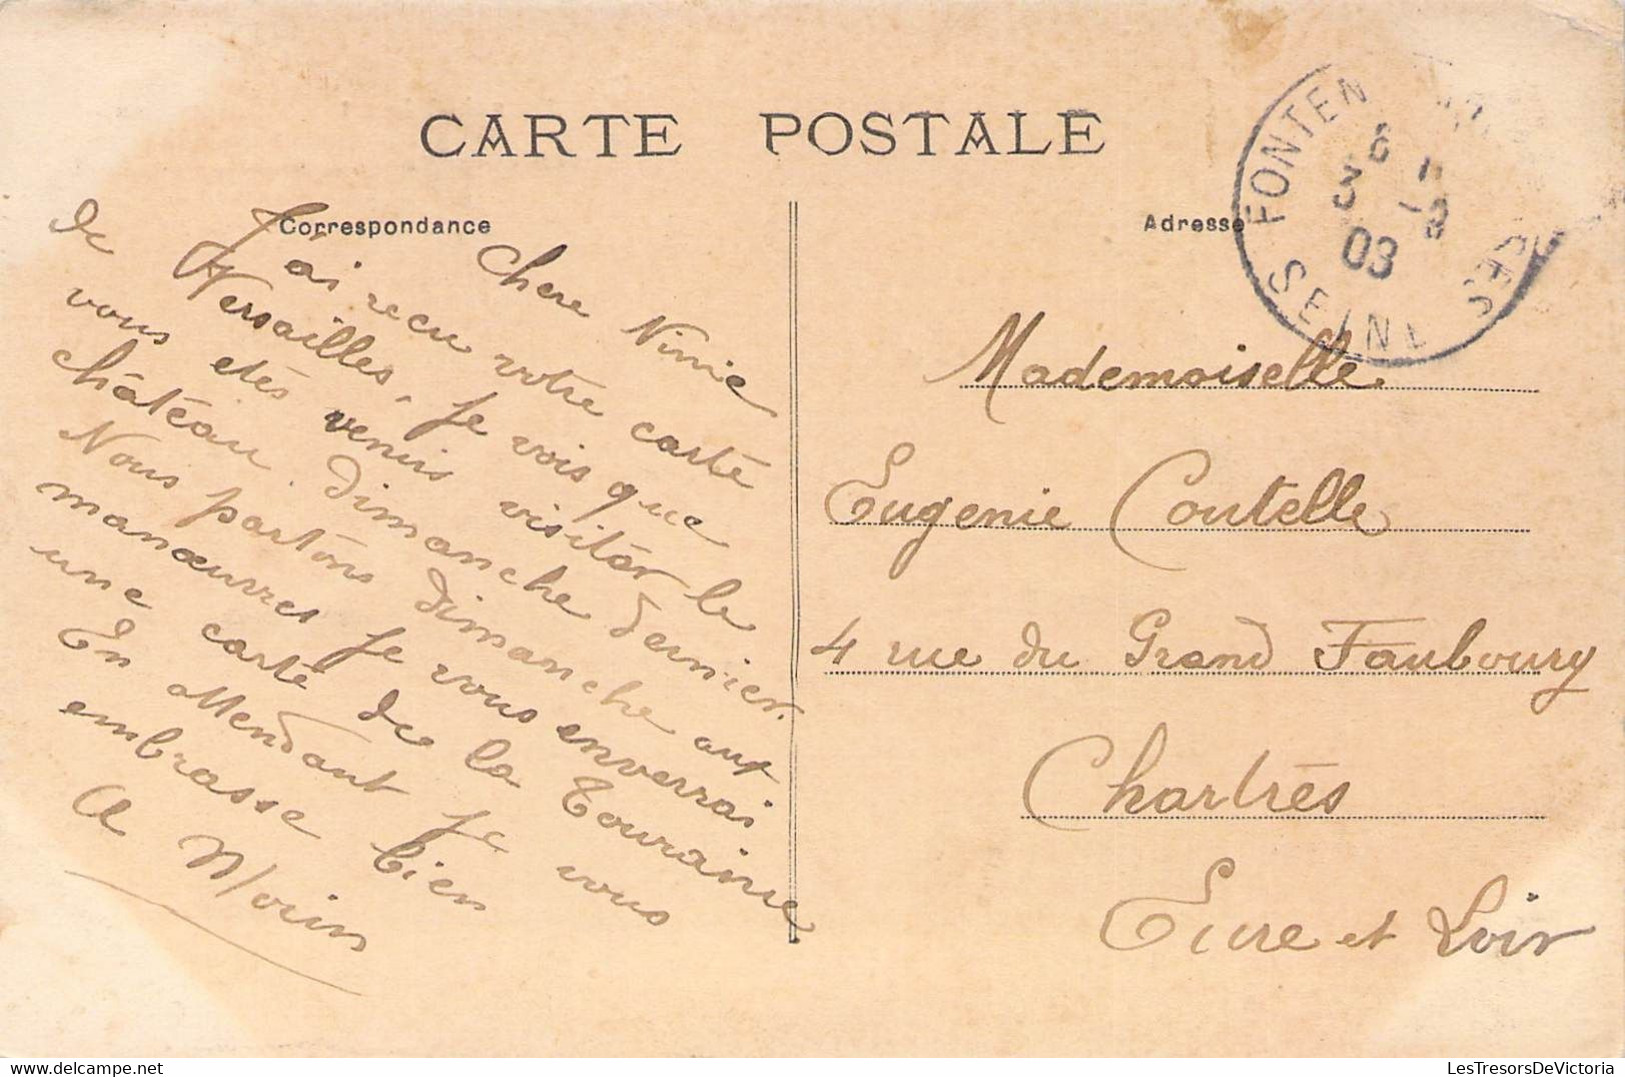 CARTE POSTALE
Correspondance
Adresse
Chere Ninie
J'ai recu votre carte
de Versailles, je vois que
vous etés venus visitér le
château dimanche dernier.
Nous partons dimanche aux
manœuvres je vous enverrai
une carte de la Touraine
En Attendant je vous
embrasse bien
A Morin
FONTEN
6
3 -9
03
SEINE
Mademoiselle
Eugenie Coutelle
4 rue du Grand Faubourg
Chartrés
Eure et Loir
LesTresorsDeVictoria